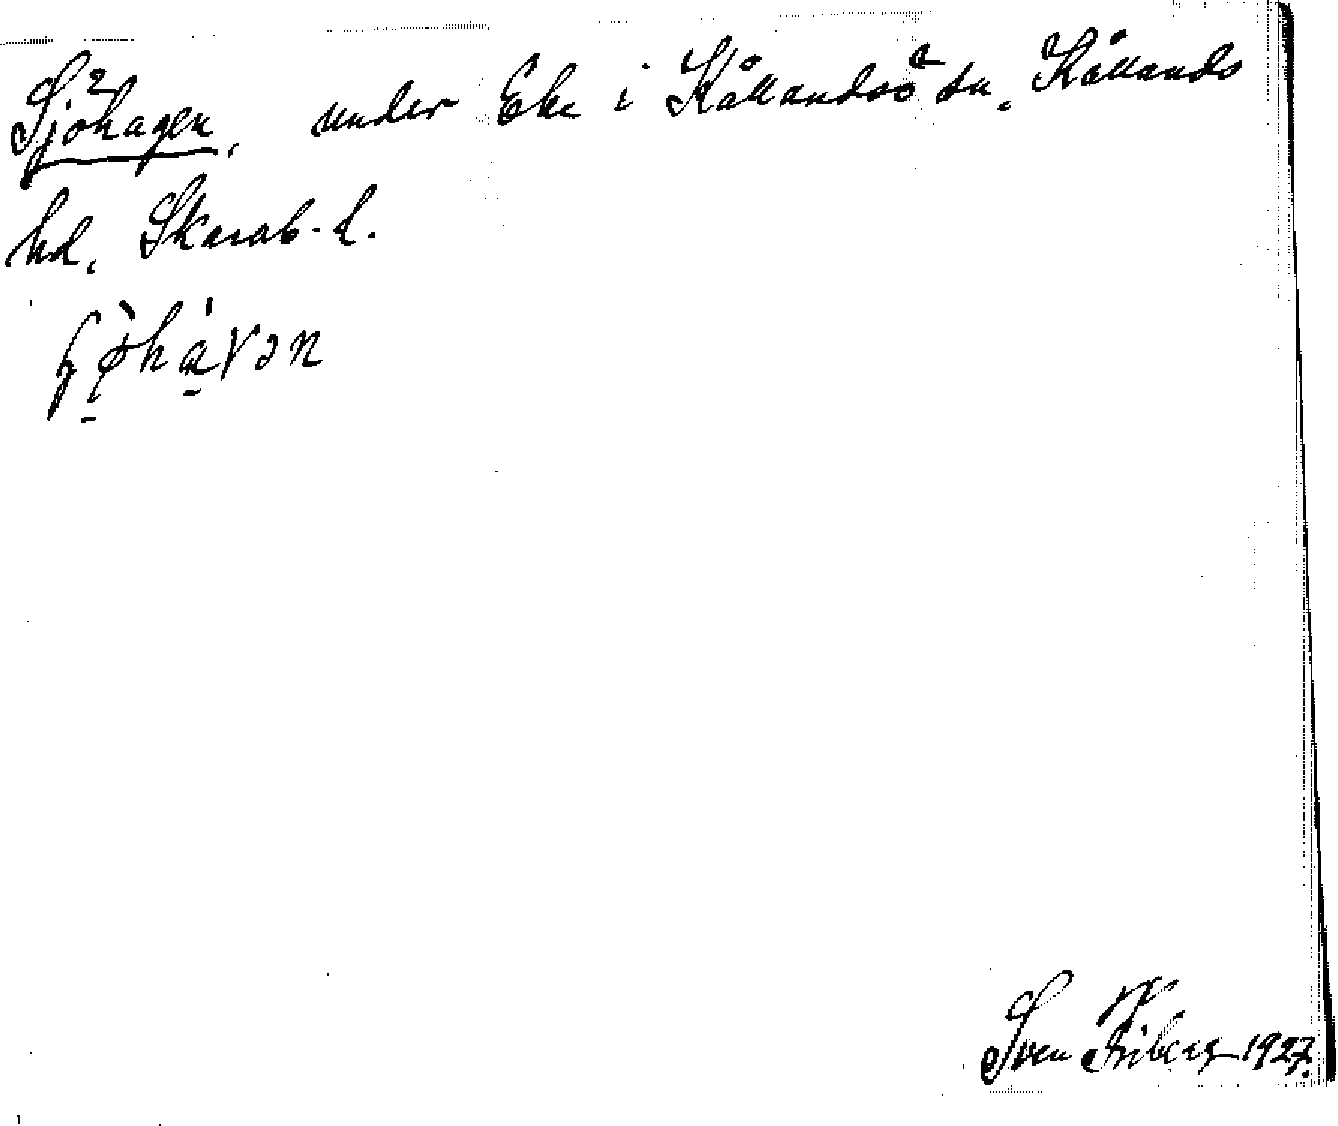 Sjöhagen, under Eke i Kållandsö sn. Kållands
hd, Skarab. l.
Sven Friberg 1927.